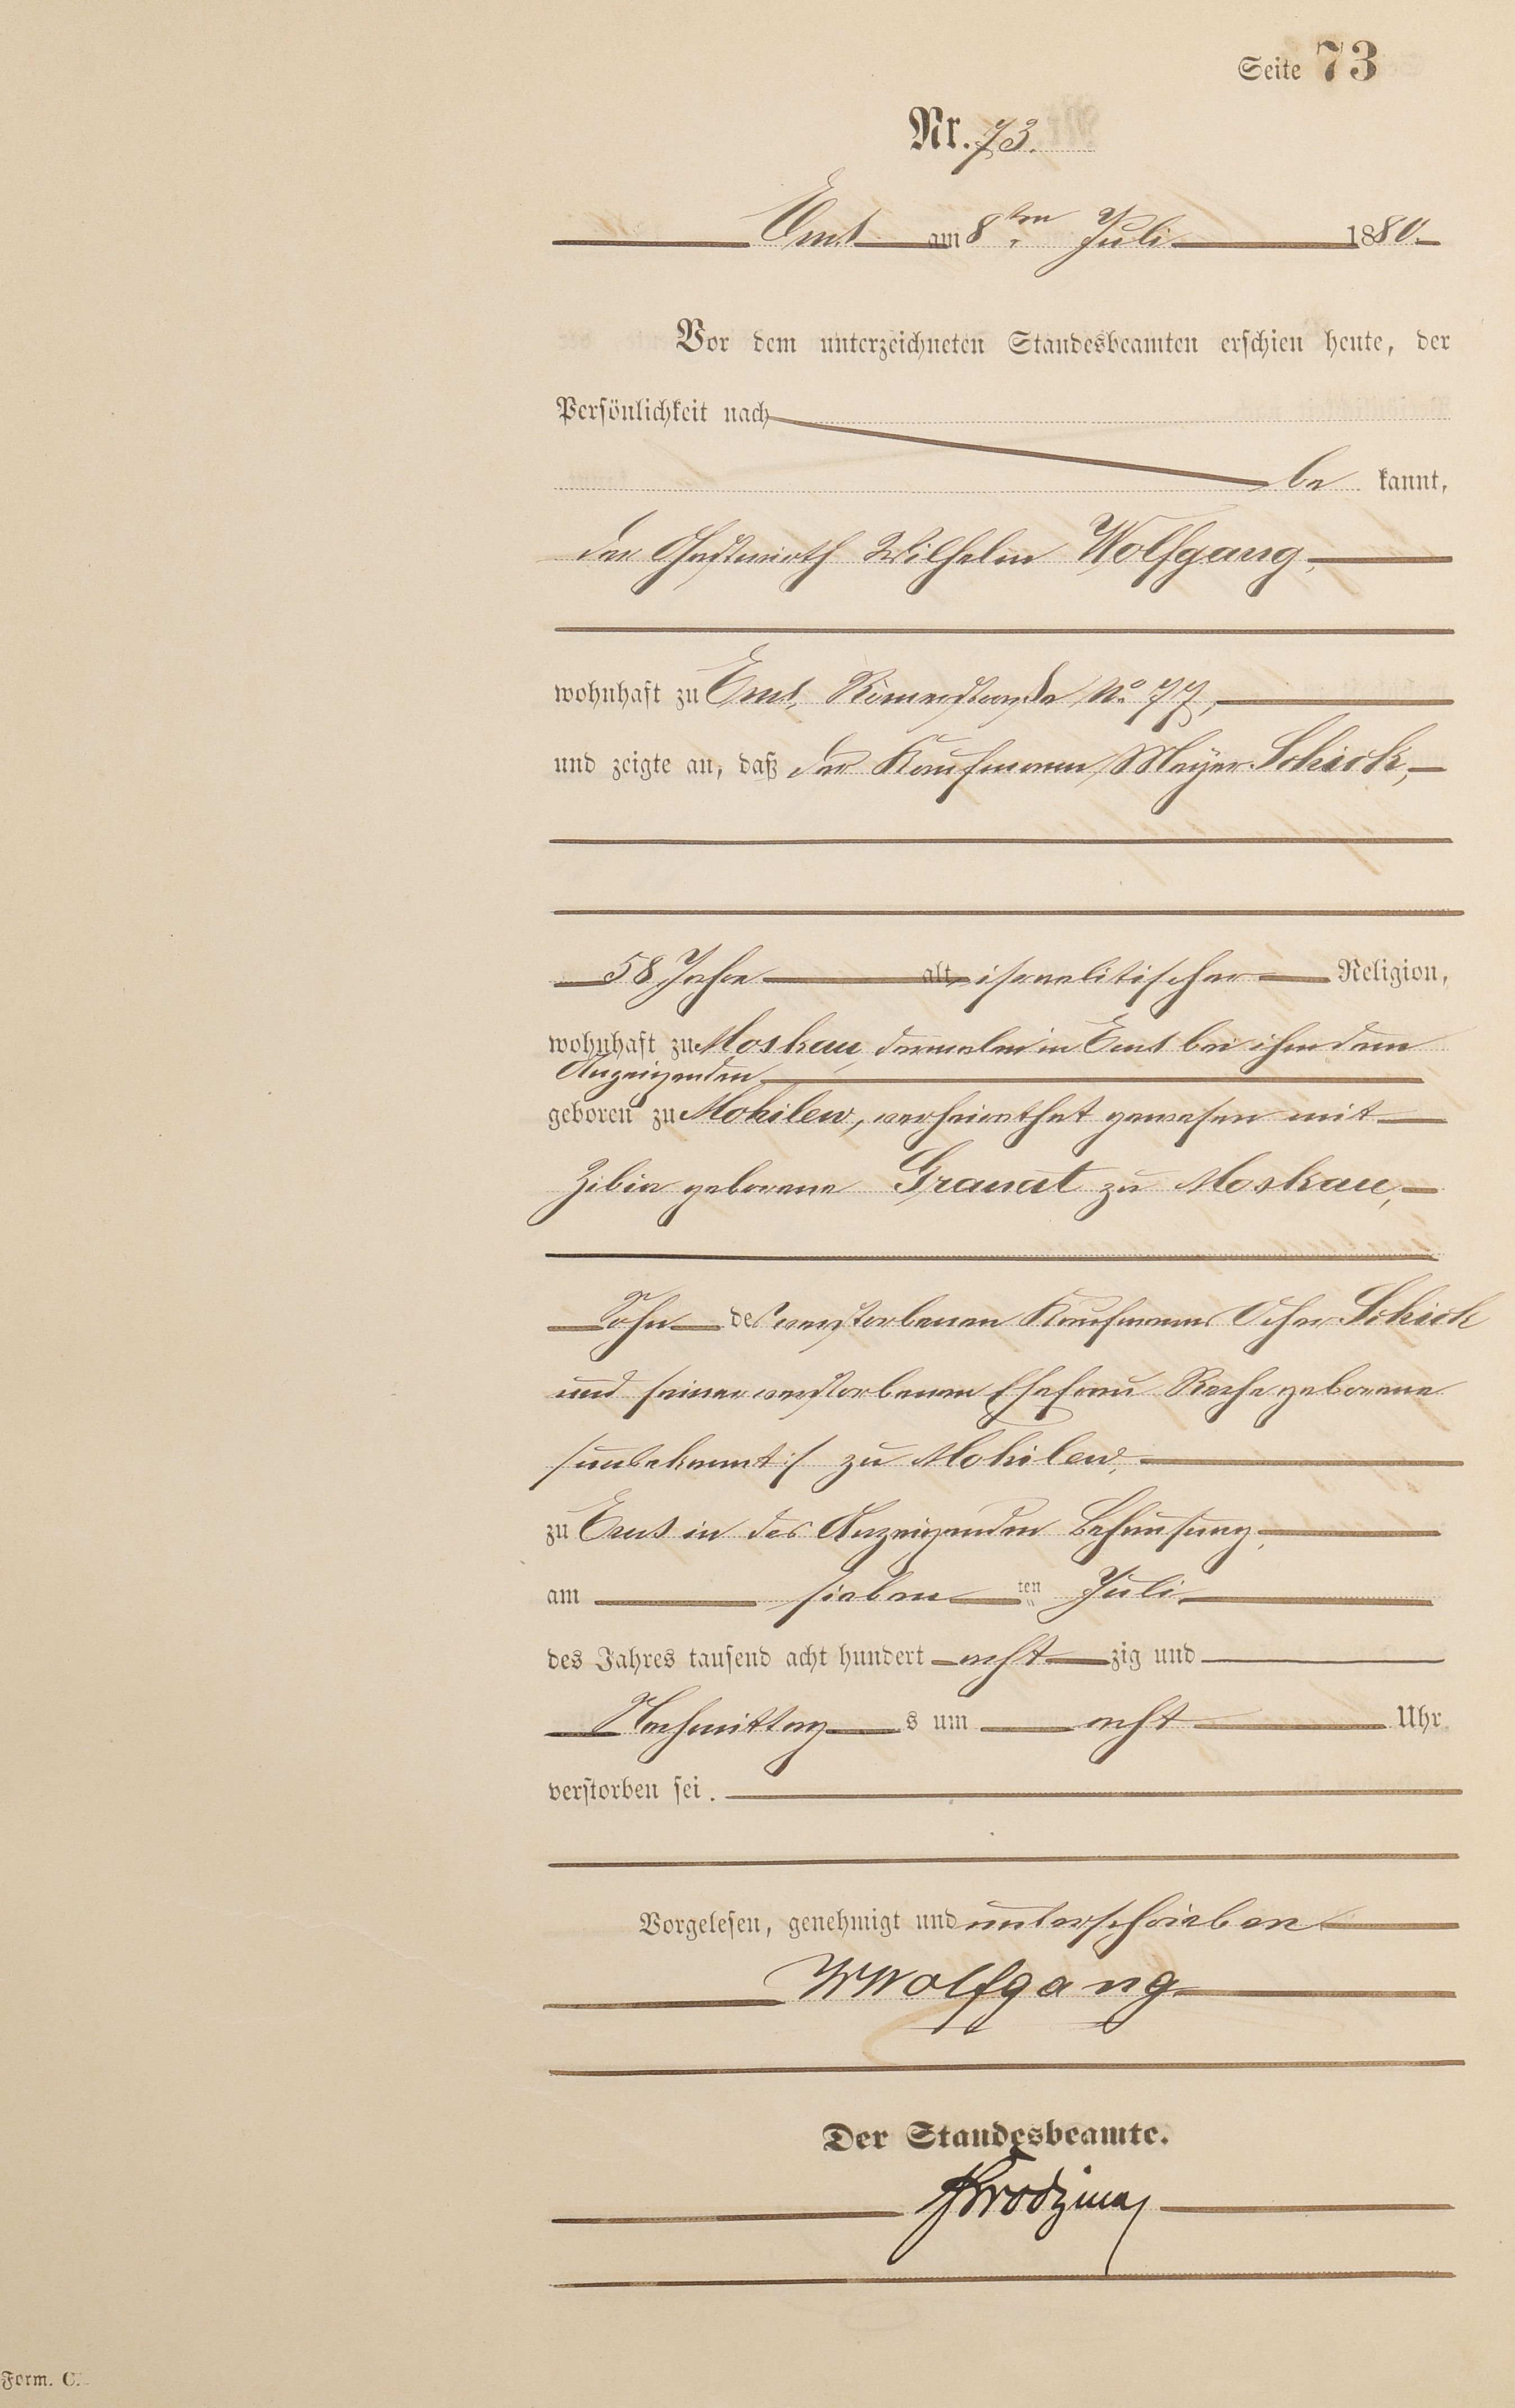 Seite 73
Nr. 73.
Ems am 8ten Juli 1880.
Vor dem unterzeichneten Standesbeamten erschien heute, der
Persönlichkeit nach
be kannt,
der Gastwirth Wilhelm Wolfgang,
wohnhaft zu Ems, Römerstraße No 77,
und zeigte an, daß der Kaufmann Meyer Schick,
58 Jahre alt, israelitischer Religion,
wohnhaft zu Moskau, dermalen in Ems bei ihm dem
Anzeigenden
geboren zu Mohilew, verheirathet gewesen mit
Zibia geborene Granat zu Moskau,
Sohn des verstorbenen Kaufmanns Scher Schick
und seiner verstorbenen Ehefrau geborene
/:unbekannt:/ zu Mohilew,
zu Ems in des Anzeigenden Behausung,
am sieben ten Juli
des Jahres tausend acht hundert acht zig und
Nachmittag s um acht Uhr
verstorben sei.
Vorgelesen, genehmigt und unterschrieben
WWolfgang
Der Standesbeamte.
Form. C.